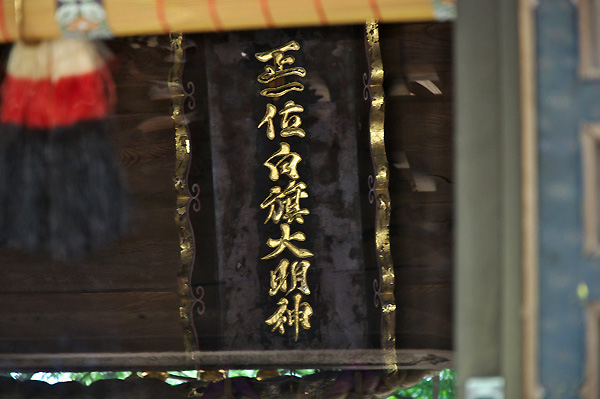 正一位白旗大明神